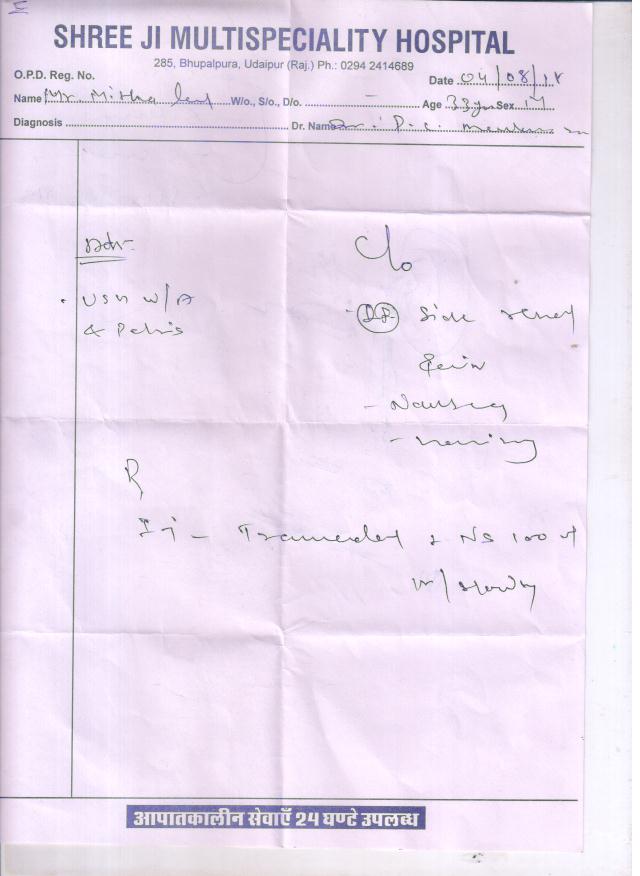 SHREE JI MULTISPECIALITY HOSPITAL
285, Bhupalpura, Udaipur (Raj.) Ph.: 0294 2414689
O.P.D. Reg. No.
Date 04/08/18
Name Mr. Mitha lal W/o., S/o., D/o. – Age 33yr Sex M
Diagnosis Dr. Name Dr. P. C.
Adv-
C/o
• USG W/A
& Pelvis
- Side renal
Pain
- Nausea
- Vomiting
R
Inj - Tramadol NS 100
IV/slowly
आपातकालीन सेवाएँ 24 घण्टे उपलब्ध